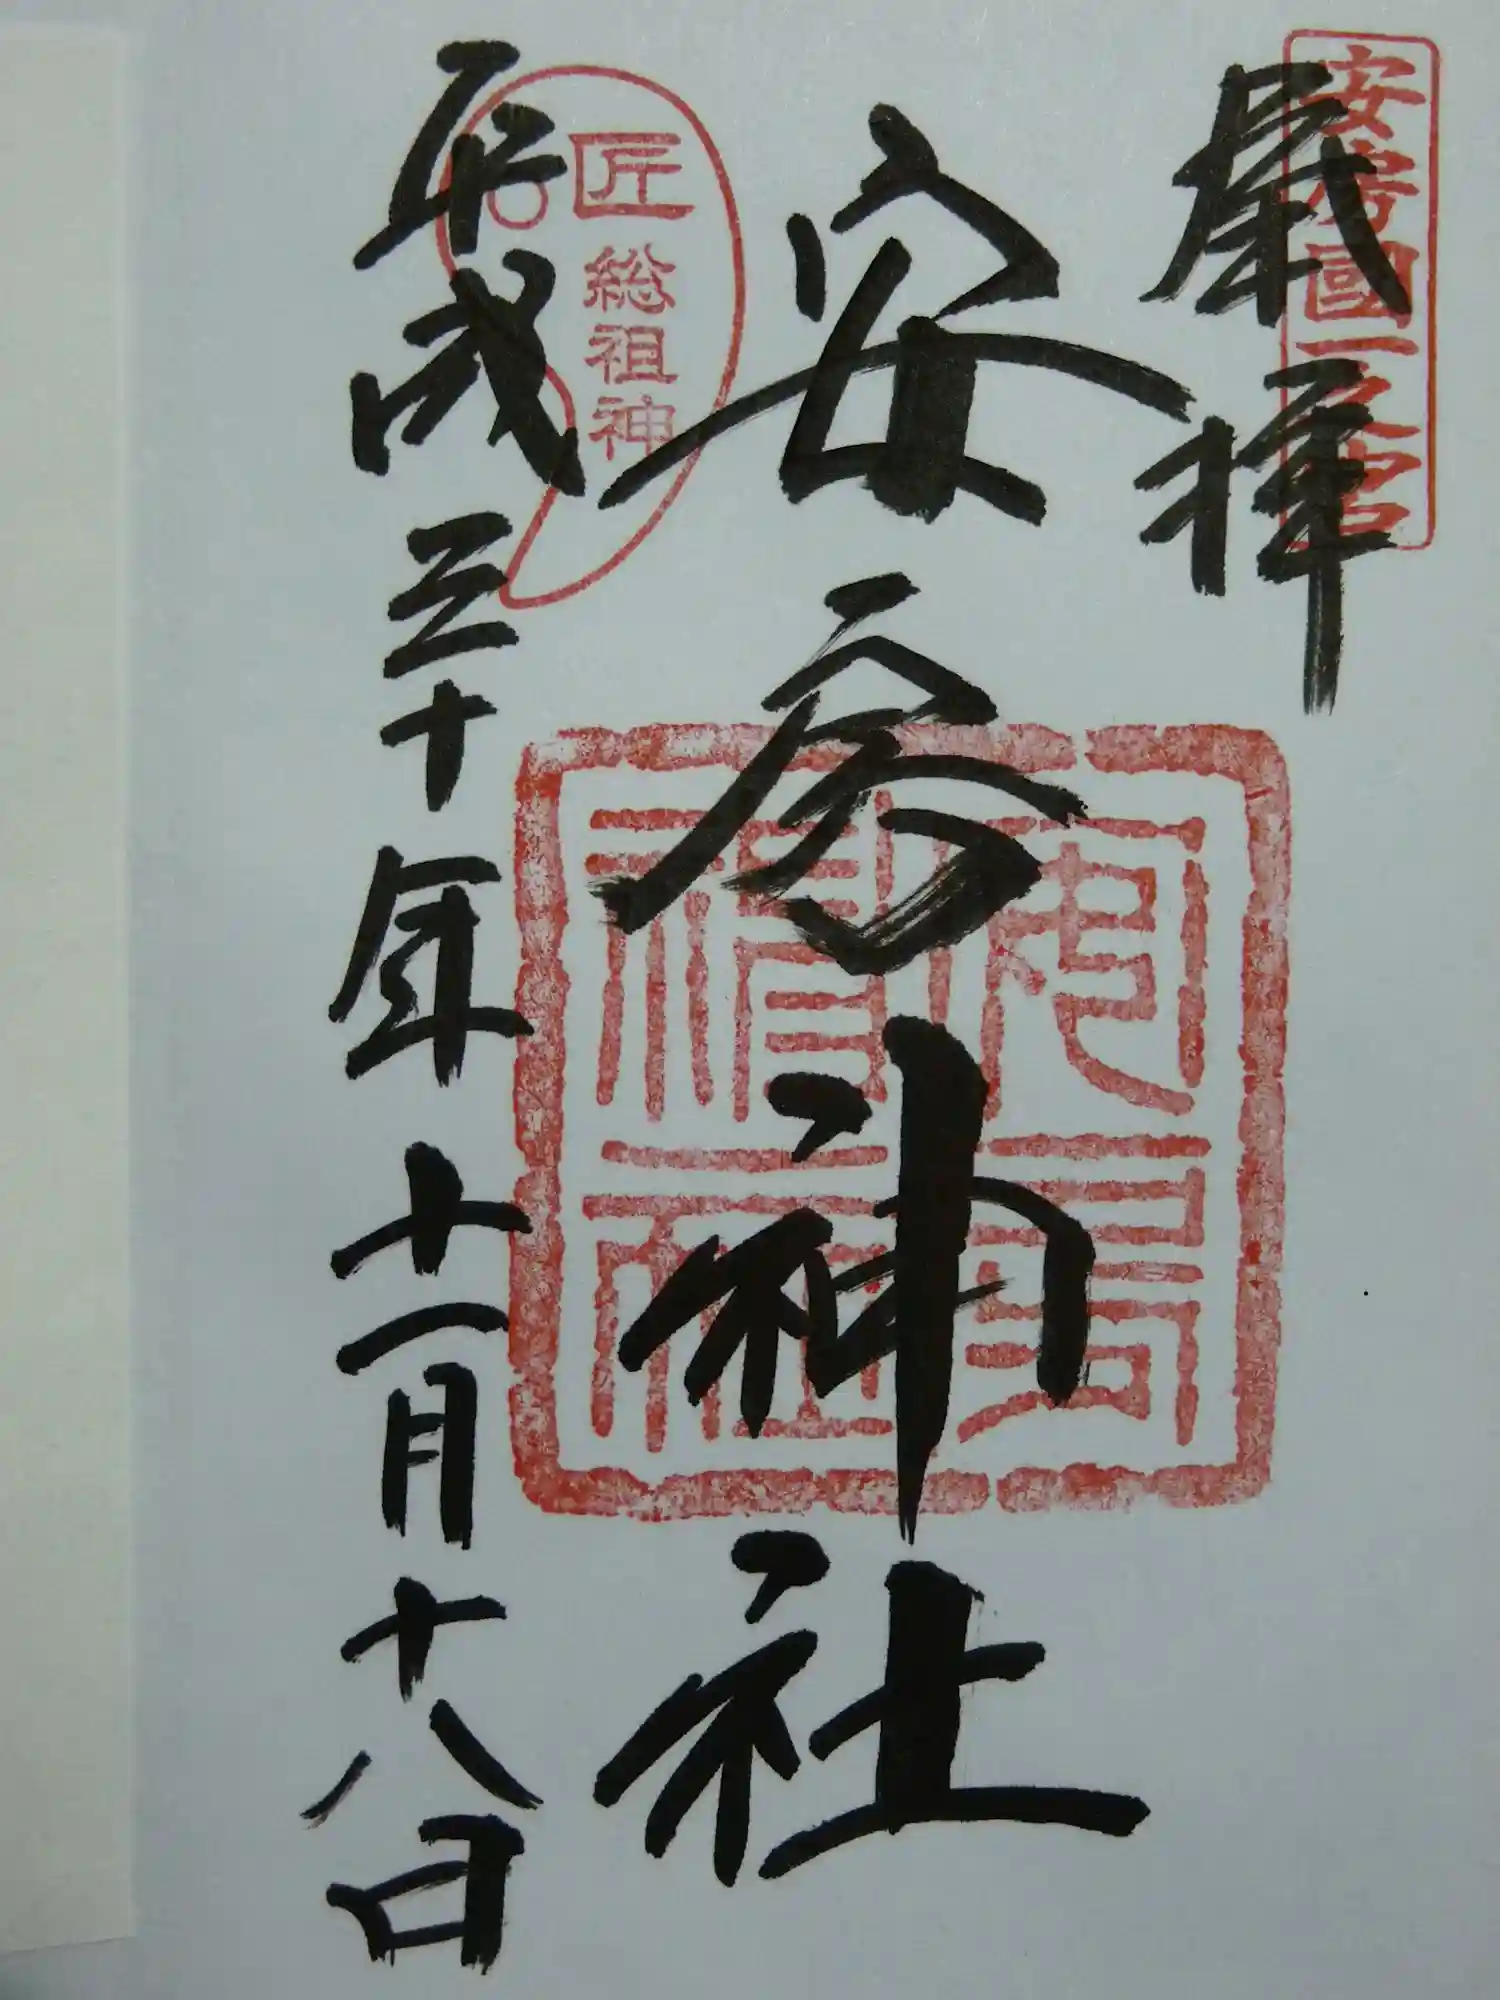 安房國一之宮
奉拝
安房神社
安房神社
匠総祖神
平成三十年十一月十八日